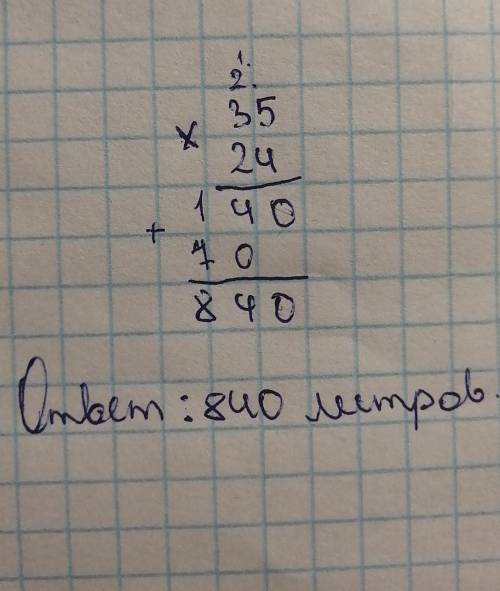 1.
2.
35
× 24
140
+ 70
840
Ответ: 840 метров.